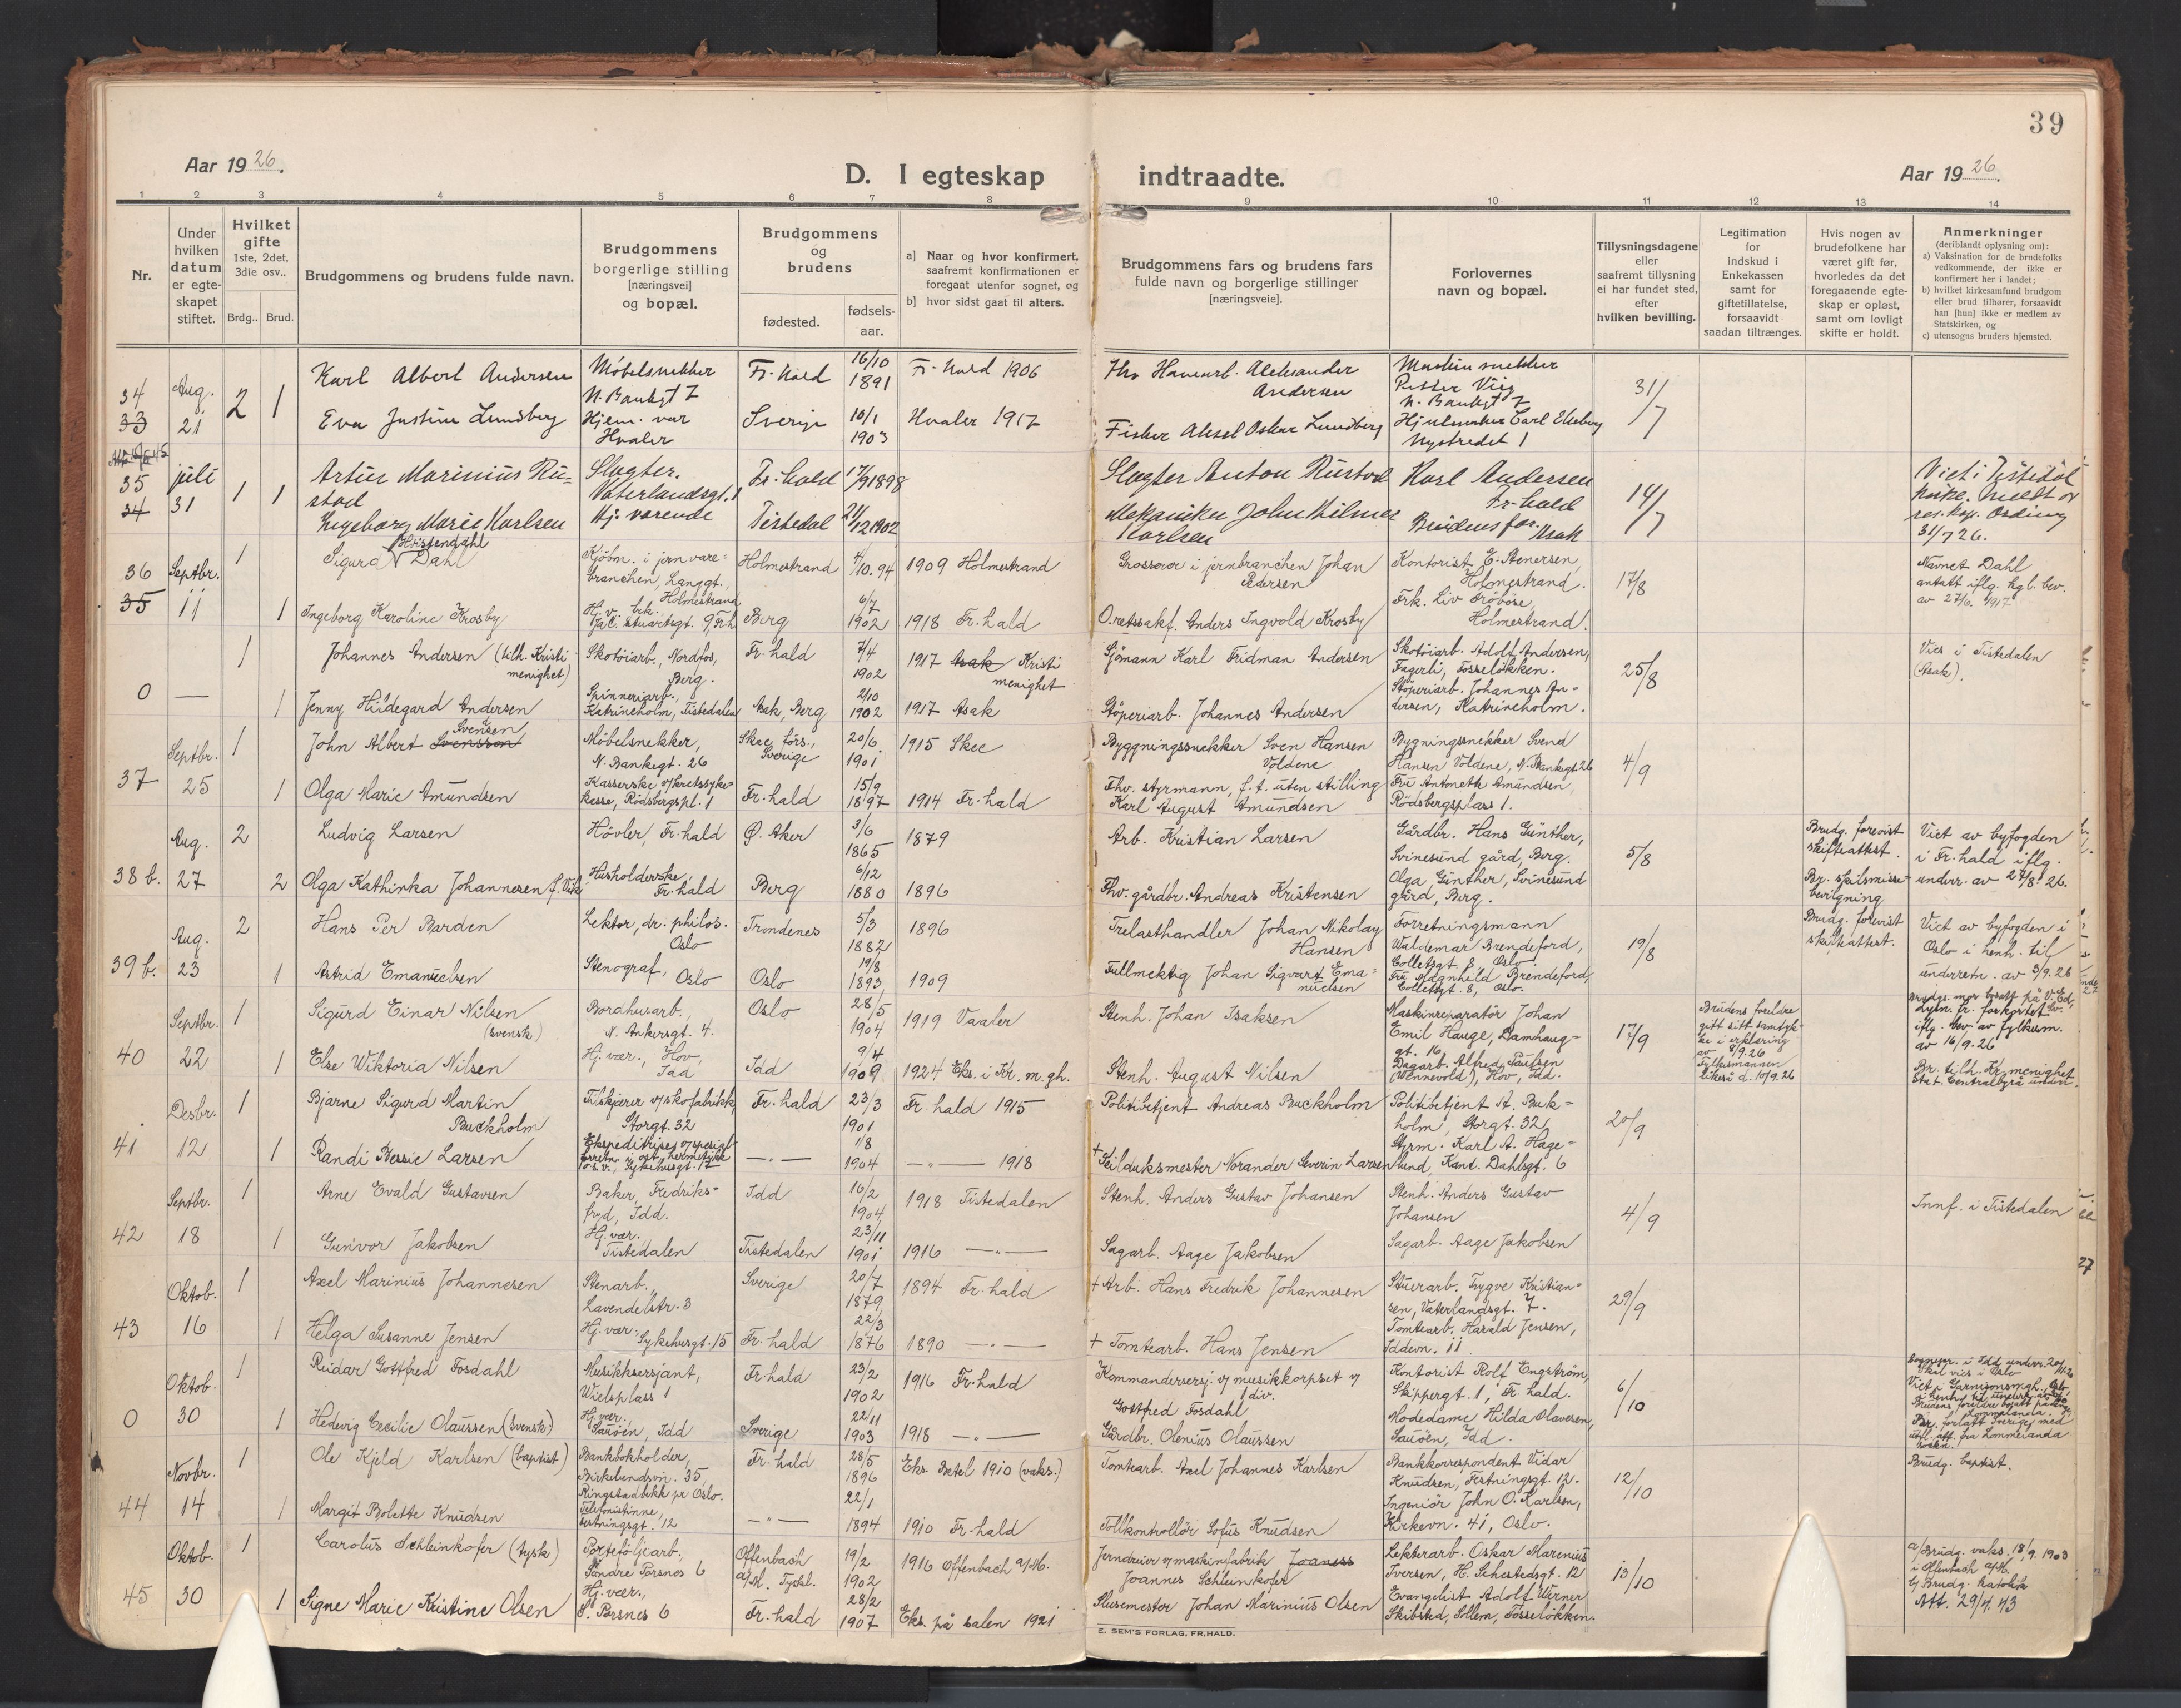 39
Aar 1926.
D. I egteskap indtraadte.
Aar 1926.
1 2 3 4 5 6 7 8 9 10 11 12 13 14
Nr.
Under hvilken datum er egteskapet stiftet.
Hvilket gifte 1ste, 2det, 3die osv..
Brdg.. Brud.
Brudgommens og brudens fulde navn.
Brudgommens borgerlige stilling [næringsvei] og bopæl.
Brudgommens og brudens
fødested.
fødsels-aar.
a] Naar og hvor konfirmert, saafremt konfirmationen er foregaat utenfor sognet, og
b] hvor sidst gaat til alters.
Brudgommens fars og brudens fars fulde navn og borgerlige stillinger [næringsveie].
Forlovernes navn og bopæl.
Tillysningsdagene eller saafremt tillysning ei har fundet sted, efter hvilken bevilling.
Legitimation for indskud i Enkekassen samt for giftetillatelse, forsaavidt saadan tiltrænges.
Hvis nogen av brudefolkene har været gift før, hvorledes da det foregaaende egteskap er opløst, samt om lovligt skifte er holdt.
Anmerkninger (deriblandt oplysning om):
a) Vaksination for de brudefolks vedkommende, der ikke er konfirmert her i landet;
b) hvilket kirkesamfund brudgom eller brud tilhører, forsaavidt han [hun] ikke er medlem av Statskirken, og
c) utensogns bruders hjemsted.
34 33 Aug. 21 2 1
Karl Albert Andersen Møbelsnekker N. Bankgt 7 Fr. hald 16/10 1891 Fr. hald 1906 Fhv Havnearb. Aleksander Andersen Maskinsnekker Petter Vig N. Bankgt 7 31/7
Eva Justine Lundberg Hjem. vær Hvaler Sverige 10/1 1903 Hvaler 1917 Fisker Aksel Oskar Lundberg Hjulmaker Carl Ekeberg Nystredet 1
35 34 juli 31 1 1
Artur Marinius Rustad Slagter. Vaterlandsgt. 1 Fr. hald 17/9 1898 Slagter Anton Rustad Karl Andersen Fr. hald 14/7 Viet i Tistedal kirke. Meldt av res. kap. Ording 31/7 26.
Ingeborg Marie Karlsen Hj. værende Tistedal 21/12 1902 Mekaniker John Hilmer Karlsen Brudens far. Asak
36 35 Septbr. 11 1
Sigurd Hvistendahl Dahl Kjöbm. i jernvarebranchen, Langgt., Holmestrand Holmestrand 4/10. 94 1909 Holmestrand Grosserer i jernbranchen Johan Pedersen Kontorist E. Stenersen, Holmestrand. 17/8 Navnet Dahl antatt iflg. kgl. bev. av 27/6. 1917
1 Ingeborg Karoline Krosby Hj. v. frk. Jac. Stuartsgt. 9, Fr.h. Berg 6/7 1902 1918 Fr. hald O.retssakf. Anders Ingvold Krosby Frk. Liv Fröböse, Holmestrand.
0 — 1
Johannes Andersen (tilh. Kristi menighet) Skotöiarb., Nordfos, Berg. Fr. hald 7/4 1902 1917 Asak Kristi menighet Sjömann Karl Fridman Andersen Skotöiarb. Adolf Andersen, Fagerli, Fosselökken. 25/8 Vies i Tistedalen (Asak).
1 Jenny Hildegard Andersen Spinneriarb., Katrineholm, Tistedalen Asak, Berg 2/10 1902 1917 Asak Stöperiarb. Johannes Andersen Stöperiarb. Johannes Andersen, Katrineholm.
37 Septbr. 25 1
John Albert Svensson Svendsen Møbelsnekker, N. Bankegt. 26 Skee förs., Sverige 20/6 1901 1915 Skee Byggningssnekker Sven Hansen Voldene Bygningssnekker Svend Hansen Voldene, N. Bankegt. 26 4/9
1 Olga Marie Amundsen Kasserske v/kretssykekasse, Rödsbergspl. 1 Fr. hald 15/9 1897 1914 Fr. hald Fhv. styrmann, f. t. uten stilling Karl August Amundsen Fru Antonette Amundsen, Rödsbergsplass 1.
38 b. Aug. 27 2
Ludvig Larsen Hövler, Fr. hald Ö. Aker 3/6 1865 1879 Arb. Kristian Larsen Gårdbr. Hans Günther, Svinesund gård, Berg. 5/8 Brudg. forevist skifteattest. Viet av byfogden i Fr. hald iflg. underr. av 27/8. 26.
2 Olga Kathinka Johannesen f. Vik Husholderske, Fr. hald Berg 6/12 1880 1896 Fhv. gårdbr. Andreas Kristensen Olga Günther, Svinesund gård, Berg. Br. skilsmissebevilgning
39 b. Aug. 23 2
Hans Per Barden Lektor, dr. philos. Oslo Trondenes 5/3 1882 1896 Trelasthandler Johan Nikolay Hansen Forretningsmann Waldemar Brendeford, Colletsgt. 8, Oslo. 19/8 Brudg. forevist skifteattest. Viet av byfogden i Oslo i henh. til underretn. av 3/9. 26
1 Astrid Emanuelsen Stenograf, Oslo Oslo 19/8 1893 1909 Fullmektig Johan Sigvart Emanuelsen Fru Magnhild Brendeford, Colletsgt. 8, Oslo.
40 Septbr. 22 1
Sigurd Einar Nilsen (svensk) Bordhusarb., N. Ankersgt. 4. Oslo 28/5 1904 1919 Vaaler Stenh. Johan Isaksen Maskinreparatör Johan Emil Hauge, Damhauggt. 16 17/9 Brudens foreldre gitt sitt samtykke i erklæring av 8/9. 26 Fylkesmannen likeså d. 10/9. 26 Lysn. fr. forkortet iflg. bev. av fylkesm. av 16/9. 26
1 Else Wiktoria Nilsen Hj. vær., Hov, Idd Idd 9/4 1909 1924 Eks. i Kr. m. gh. Stenh. August Nilsen Dagarb. Alfred Paulsen (Wennevold), Hov, Idd. Br. tilh. Kr. menighet Stat. Centralbyrå underr.
41 Desbr. 12 1
Bjarne Sigurd Martin Buckholm Tilskjærer v/skofabrikk, Storgt. 32 Fr. hald 23/3 1901 Fr. hald 1915 Politibetjent Andreas Buckholm Politibetjent A. Buckholm, Storgt. 32, 20/9
1 Randi Bessie Larsen Ekspeditrise v/spesialforretn. i ost, hermetikk o. s. v., Sykehusgt. 17 —"— 1/8 1904 —"— 1918 + Seilduksmester Norander Severin Larsen Styrm. Karl A. Hagelund, Kand. Dahlsgt. 6
42 Septbr. 18 1
Arne Evald Gustavsen Baker, Fredriksfryd, Idd. Idd 16/2 1904 1918 Tistedalen Stenh. Anders Gustav Johansen Stenh. Anders Gustav Johansen 4/9 Innf. i Tistedalen
1 Gunvor Jakobsen Hj. vær. Tistedalen Tistedalen 23/11 1901 1916 —"— Sagarb. Aage Jakobsen Sagarb. Aage Jakobsen
43 Oktob. 16 1
Axel Marinius Johannesen Stenarb., Lavendelstr. 3 Sverige 20/7 1879 1894 Fr. hald + Arb. Hans Fredrik Johannesen Stuerarb. Trygve Kristiansen, Vaterlandsgt. 7. 29/9
1 Helga Susanne Jensen Hj. vær. Sykehusgt. 15 Fr. hald 22/3 1876 1890 —"— + Tomtearb. Hans Jensen Tomtearb. Harald Jensen, Iddevn. 11
0 Oktob. 30 1
Reidar Gottfred Fosdahl Musikksersjant, Wielsplass 1 Fr. hald 23/2 1902 1916 Fr. hald Kommandersersj. v/ musikkorpset v/ 1 div. Gottfred Fosdahl Kontorist Rolf Engström, Skippergt. 1, Fr. hald. 6/10
1 Hedevig Cecilie Olaussen (svensk) Hj. vær. Sauöen, Idd Sverige 22/11 1903 1918 —"— Gårdbr. Olenius Olaussen Modedame Hilda Olavesen, Sauöen, Idd.
44 Novbr. 14 1
Ole Kjeld Karlsen (baptist) Bankbokholder, Birkelundsvn. 35, Ringstadbekk pr Oslo. Fr. hald 28/5 1896 Eks. Betel 1910 (vaks.) Tomtearb. Axel Johannes Karlsen Bankkorrespondent Vidar Knudsen, Festningsgt. 12. 12/10 Brudg. baptist.
1 Margit Bolette Knudsen Telefonistinne, Festningsgt. 12 —"— 22/1 1894 1910 Fr. hald Tollkontrollör Sofus Knudsen Ingeniör John O. Karlsen, Kirkevn. 41, Oslo.
45 Oktob. 30 1
Carolus Schleinkofer (tysk) Porteföljearb., Söndre Porsnes 6 Offenbach a/M. Tyskl. 19/2 1902 1916 Offenbach a/M. Jerndreier v/maskinfabrik Joaness Joannes Schleinkofer Lekterarb. Oskar Marenius Iversen, H. Sehestedsgt. 12 13/10 a/ Brudg. vaks. 18/9. 1903 i Offenbach a/M. b/ Brudg. katolikk Att. 29/4. 43
1 Signe Marie Kristine Olsen Hj. vær., S. Porsnes 6 Fr. hald 28/2 1907 Eks. på salen 1921 Slusemester Johan Marinius Olsen Evangelist Adolf Werner Skibsted, Sollem, Fosselökken.
E. SEM'S FORLAG, FR.HALD.